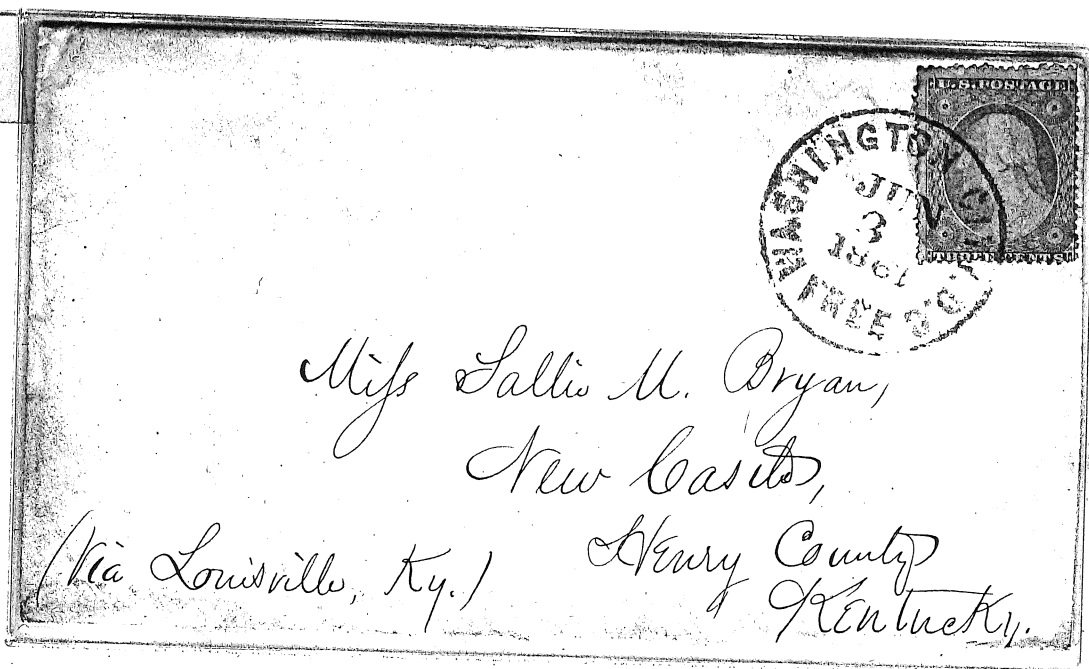 U.S. POSTAGE
THREE CENTS
WASHINGTON
JUN
3
1861
FREE
Miss Sallie M. Bryan,
New Castle,
Henry County
Kentucky.
(Via Louisville, Ky.)